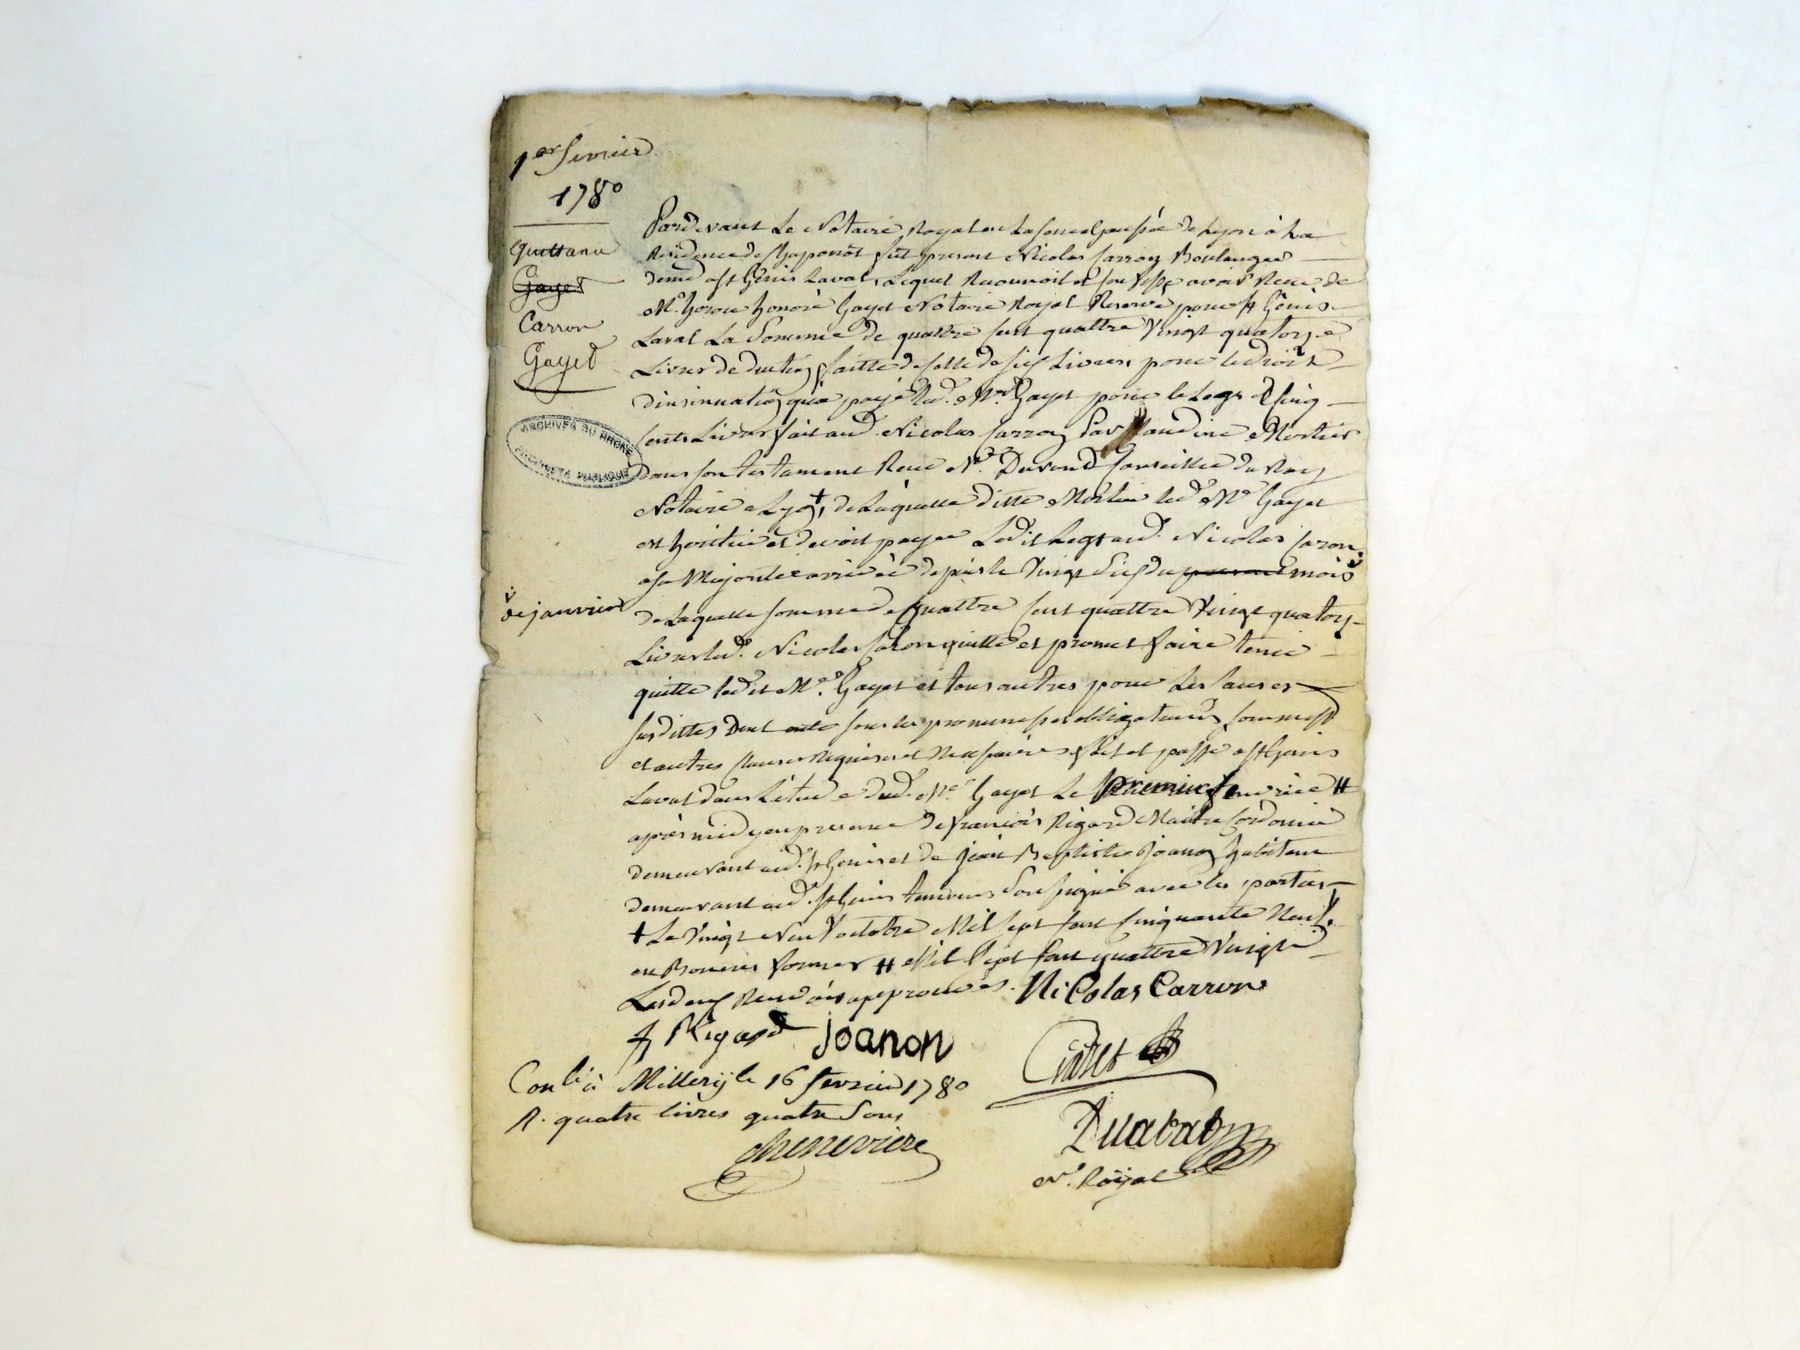 1er fevrier
1780
quittance
Gayet
Carron
Gayet
ARCHIVES DU RHONE
PROPRIETE PUBLIQUE
Pardevant Le Notaire Royal en La senechaussée de Lyon à La
Residence de Chaponost fut present Nicolas Carron Boulanger
dem.t a St Génis Laval, Lequel Reconnoit et Confesse avoir Receu de
M.e honoré Gayet Notaire Royal Reservé pour St Génis
Laval La Somme de quattre cent quattre Vingt quatorze
Livres deduction faitte de celle de six Livres, pour le droit
d'insinuation qu'a payé led. M.e Gayet pour le Legs de Cinq
cents Livres fait aud. Nicolas Carron Par Claudine Mortier
Dans son testament Receu M.e Durand Conseiller du Roy
Notaire a Lyon + de Laquelle ditte Mortier led. M.e Gayet
est heritier et devoit payer Ledit Legs aud. Nicolas Caron
a sa Majorité arrivée depuis le Vingt Six du mois
v de janvier
de Laquelle somme de quattre cent quattre Vingt quatorze
Livres led. Nicolas Caron quitte et promet faire tenir
quitte ledit M.e Gayet et tous autres pour Les Causes
susdittes Dont acte sous les promesses obligations, soumissions
et autres Clauses Requises et Necessaires fait et passé a St Genis
Laval dans L'étude dud. M.e Gayet Le premier fevrier #
après midy en presence de françois Rigard Maitre Cordonnier
demeurant aud. St Genis et de jean Baptiste Joanon habitant
demeurant aud. St Genis temoins Soussignés avec les parties
+ Le Vingt Neuf octobre Mil sept cent Cinquante Neuf
en Bonnes formes # Mil Sept Cent quattre Vingt
Les deux Renvois approuvés. Nicolas Carron
f Rigard joanon
Gayet
Con.lé à Millery le 16 fevrier 1780
R. quatre livres quatre Sous
Chenevière
N.re Royal